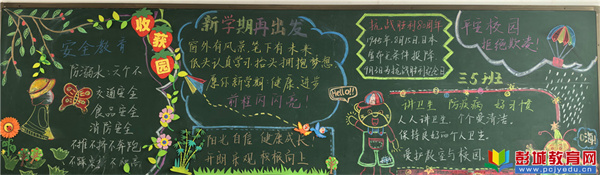 收获园
安全教育
防溺水：六个不
交通安全
食品安全
消防安全
不推不挤不奔跑
新学期再出发
窗外有风景 笔下有未来
低头认真学习 抬头拥抱梦想
愿你新学期：健康，进步
前程闪闪亮！
阳光自信 健康成长
开朗乐观 积极向上
抗战胜利80周年
1945年8月15日，日本
宣布无条件投降
Hello!!
平安校园
拒绝欺凌！
三5班
讲卫生 防疾病 好习惯
人人讲卫生，个个爱清洁，
保持良好的个人卫生，
爱护教室与校园。
彭城教育网
www.pcjyedu.cn